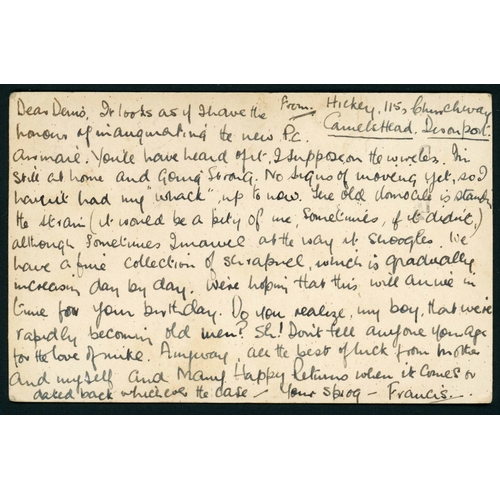 Dear Denis, It looks as if I have the From. Hickey, 115, Churchway
honours of inaugurating the new P.C. Camels Head. Devonport.
Airmail. You'll have heard of it, I suppose, on the wireless. I'm
still at home and going strong. No signs of moving yet, so I
haven't had my "whack", up to now. The old domocile is standing
the strain (it would be a pity of me, sometimes, if it didn't,)
although sometimes I marvel at the way it snoogles. We
have a fine collection of shrapnel, which is gradually
increasing day by day. We're hoping that this will arrive in
time for your birthday. Do you realize, my boy, that we're
rapidly becoming old men? Sh! Don't tell anyone your age
for the love of mike. Anyway, all the best of luck from mother
and myself and Many Happy Returns when it comes or
dated back whichever the case — Your Sprog — Francis.